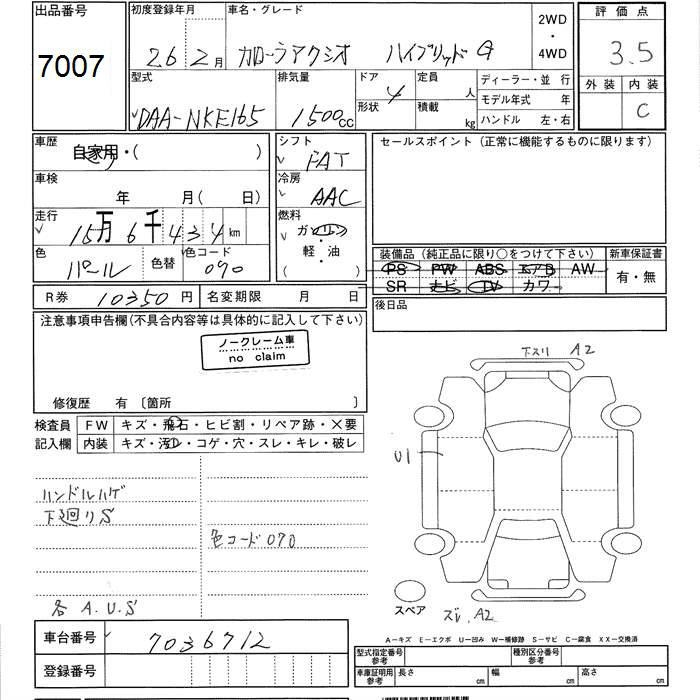 出品番号
7007
初度登録年月
26年2月
車名・グレード
カローラアクシオ ハイブリッドG
2WD
・
4WD
評価点
3.5
外装 内装
C
型式
DAA-NKE165
排気量
1500cc
ドア
4
形状
定員
人
積載
kg
ディーラー・並 行
モデル年式 年
ハンドル 左・右
車歴
自家用・( )
シフト
FAT
セールスポイント (正常に機能するものに限ります)
車検
年 月( 日)
冷房
AAC
走行
15万6千434km
燃料
ガソリン
軽・油
( )
色
パール
色替
色コード
070
装備品 (純正品に限り○をつけて下さい)
新車保証書
PS PW ABS エアB AW
SR ナビ TV カワ
有・無
R券
10350円
名変期限 月 日
後日品
注意事項申告欄(不具合内容等は具体的に記入して下さい)
ノークレーム車
no claim
修復歴 有 〔箇所 〕
検査員
記入欄
FW キズ・飛石・ヒビ割・リペア跡・×要
内装 キズ・汚レ・コゲ・穴・スレ・キレ・破レ
ハンドルハゲ
下廻りS
色コード070
各 A.U.S
下スリ A2
U1
スペア
ズレ, A2
車台番号
7036712
登録番号
A-キズ E-エクボ U-凹み W-補修跡 S-サビ C-腐食 XX-交換済
型式指定番号
参考
種別区分番号
参考
車庫証明用
参考
長さ cm
幅 cm
高さ cm